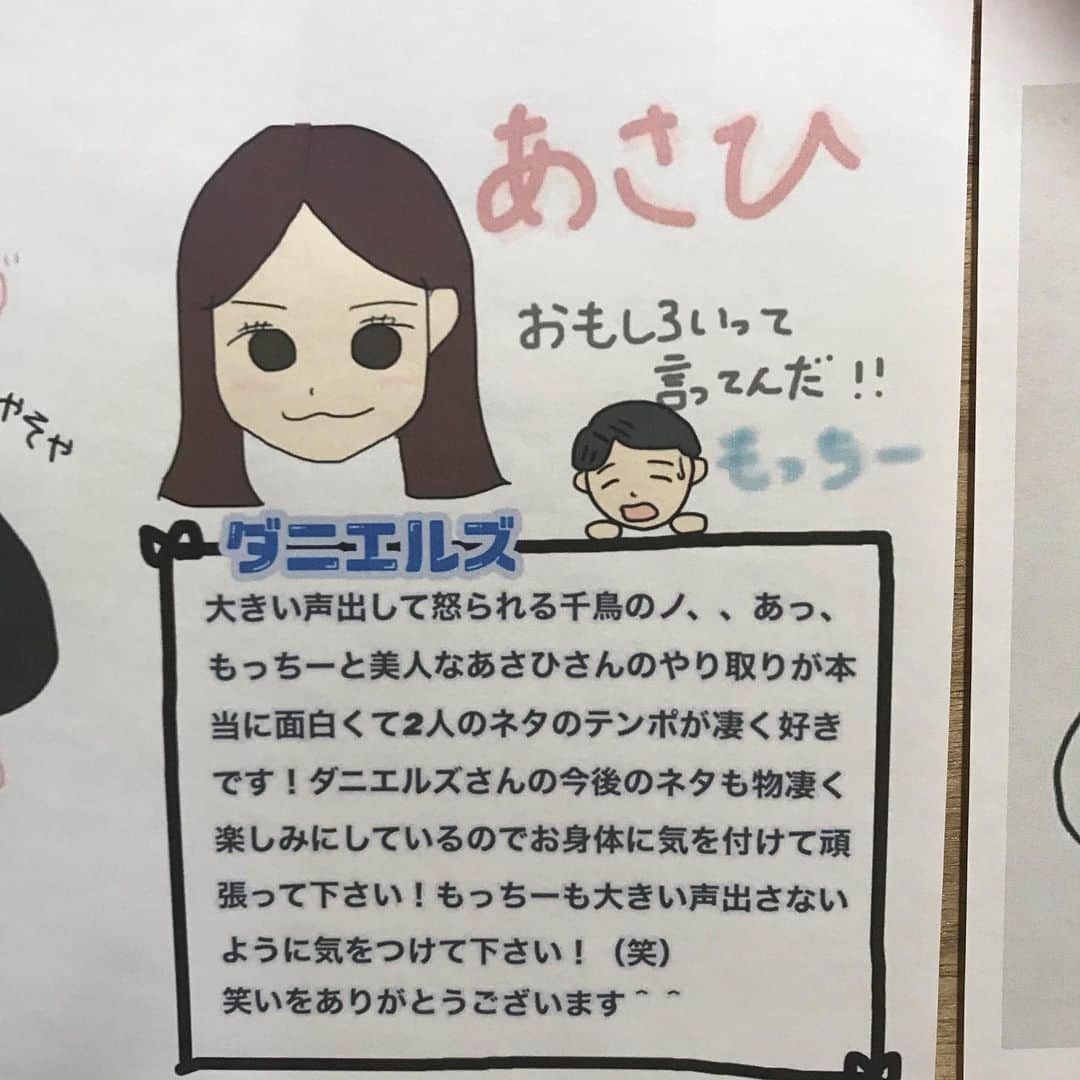 あさひ
おもしろいって
言ってんだ!!
もっちー
やそや
ダニエルズ
大きい声出して怒られる千鳥のノ、、あっ、
もっちーと美人なあさひさんのやり取りが本
当に面白くて2人のネタのテンポが凄く好き
です！ダニエルズさんの今後のネタも物凄く
楽しみにしているのでお身体に気を付けて頑
張って下さい！もっちーも大きい声出さない
ように気をつけて下さい！（笑）
笑いをありがとうございます＾＾